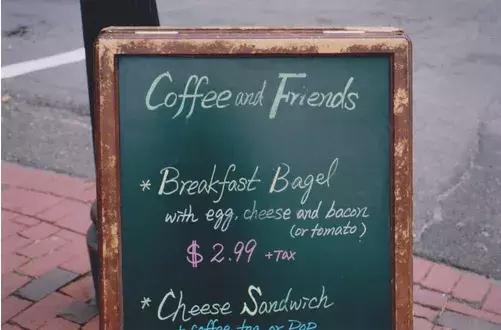 Coffee and Friends
* Breakfast Bagel
with egg, cheese and bacon
(or tomato)
$ 2.99 + TAX
* Cheese Sandwich
coffee, tea, or pop